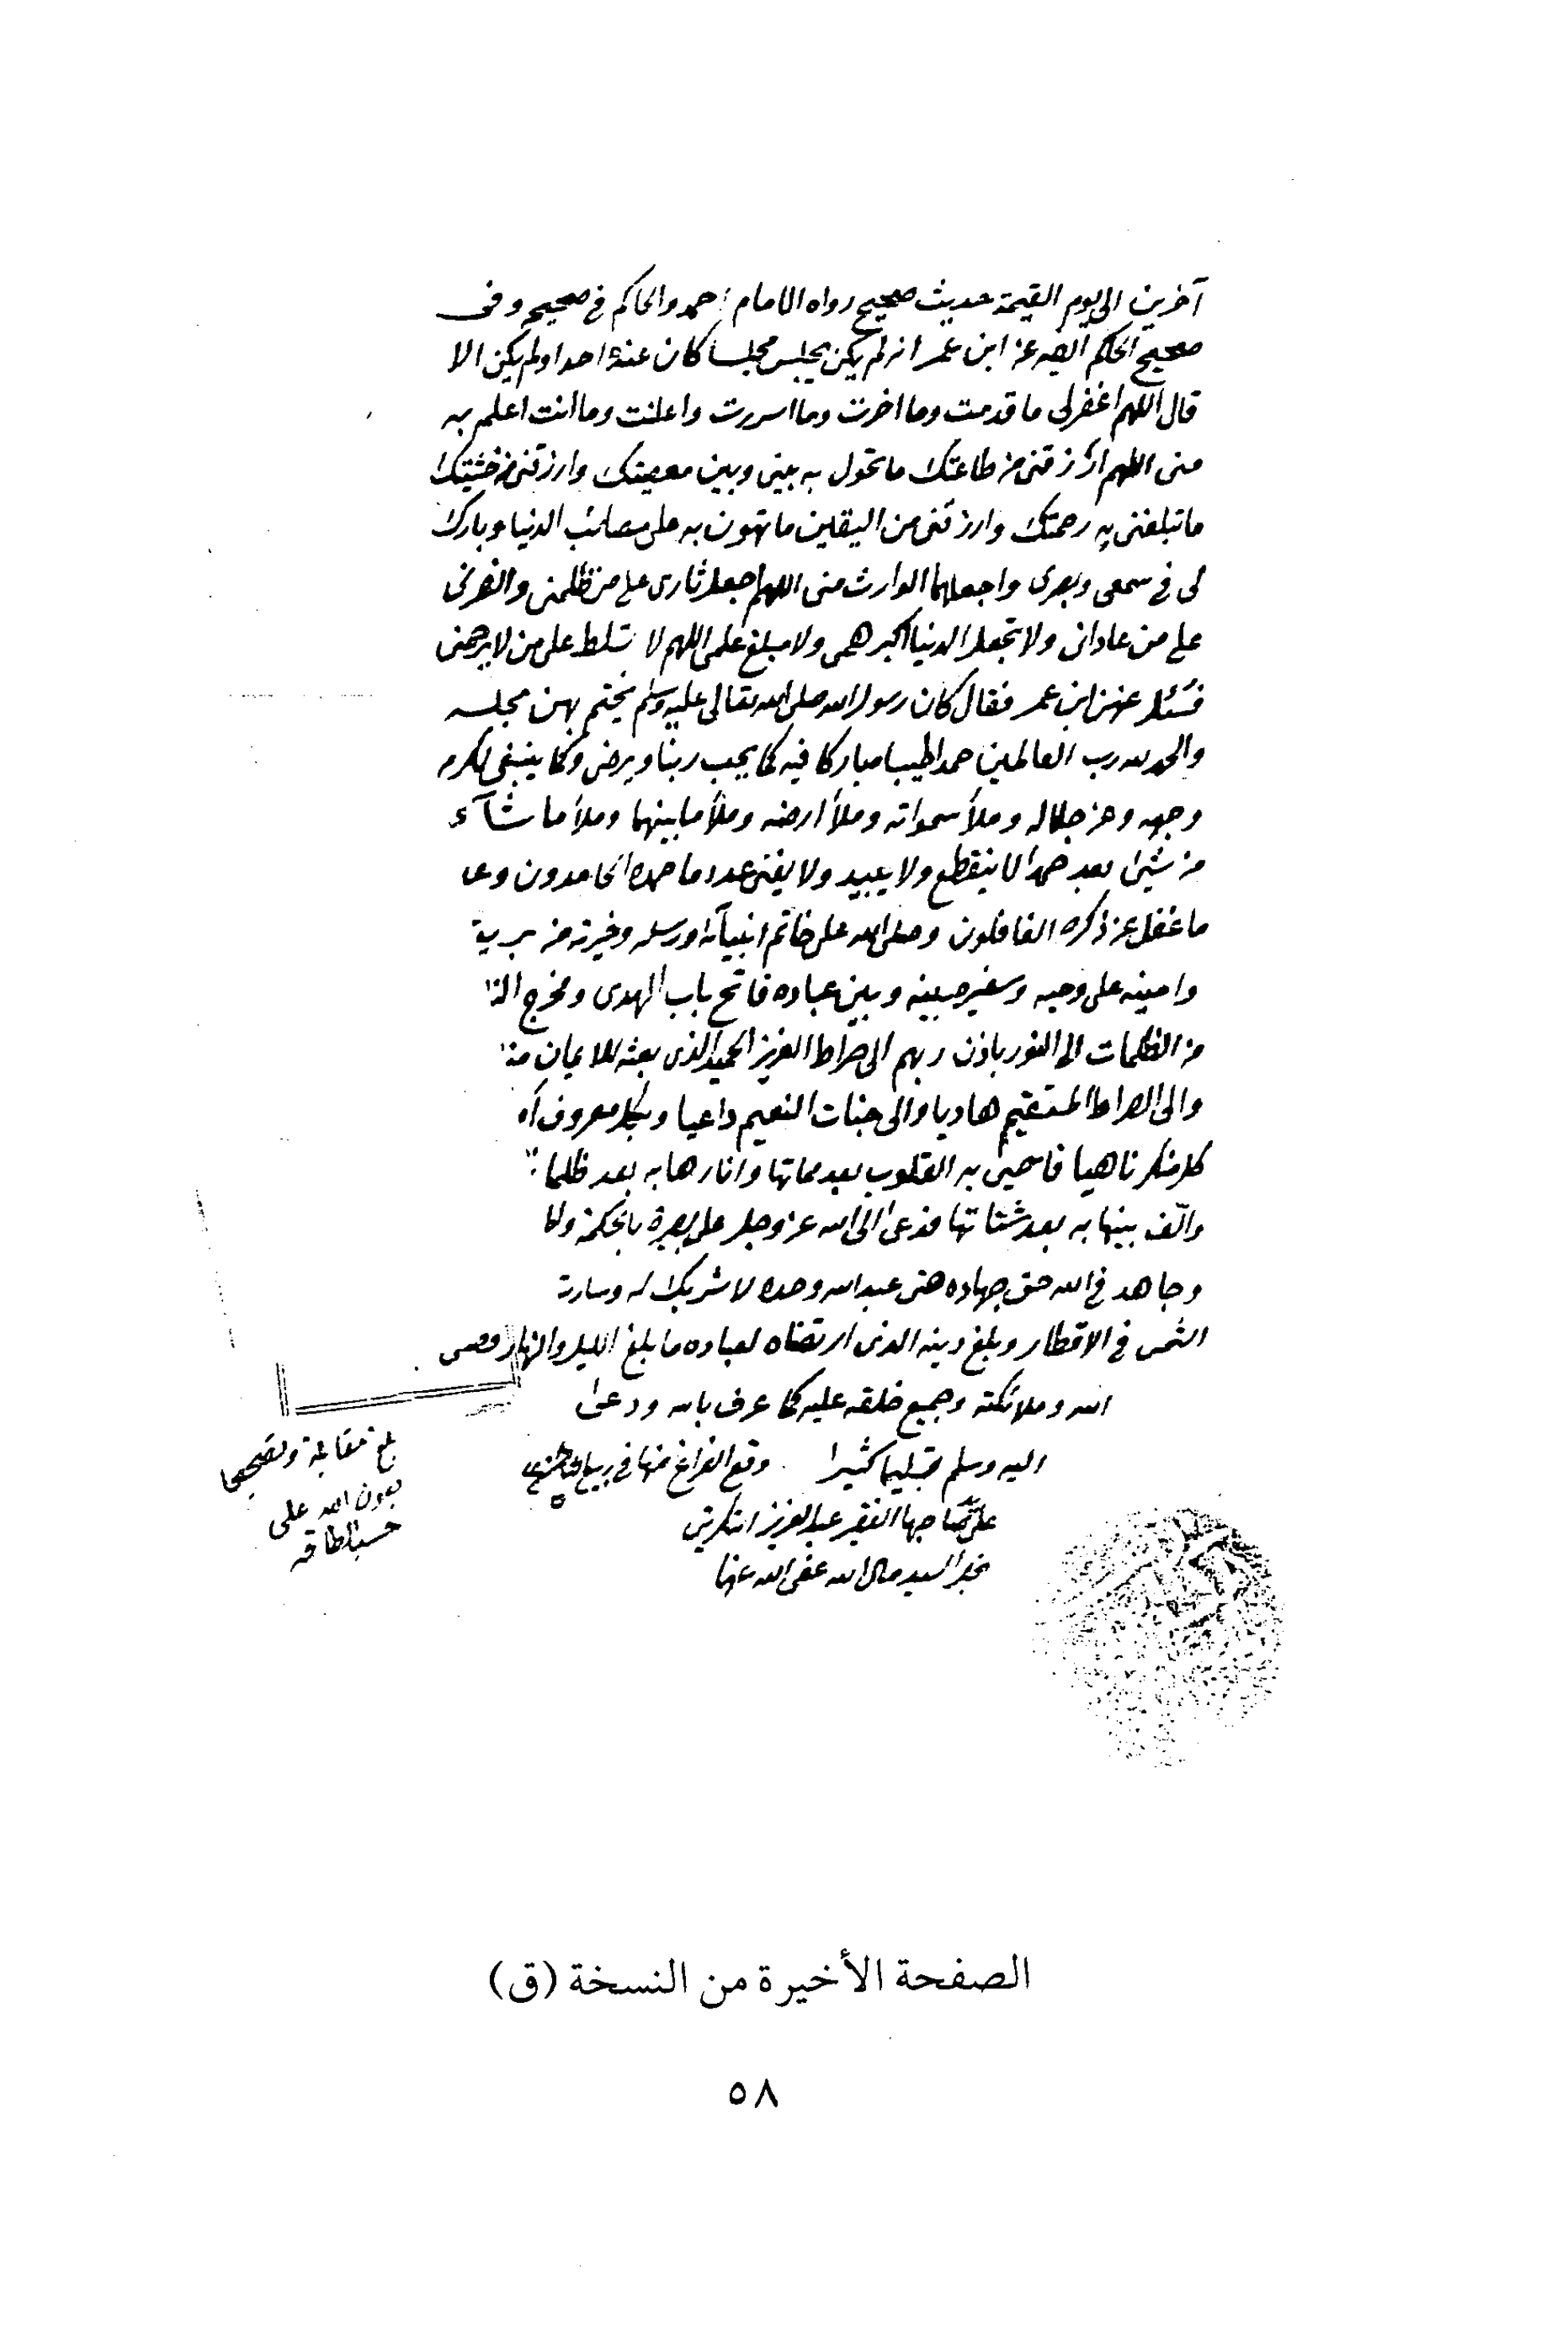 آخرين الى يوم القيمة حديث صحيح رواه الامام احمد والحاكم في صحيحه وفى
صحيح الحاكم ايضه عن ابن عمر انه لم يكن يجلس مجلسا كان عنده احد اولم يكن الا
قال اللهم اغفرلى ما قدمت وما اخرت وما اسررت واعلنت وما انت اعلم به
منى اللهم ارزقنى من طاعتك ما تحول به بينى وبين معصيتك وارزقنى من خشيتك
ما تبلغنى به رحمتك وارزقنى من اليقين ما تهون به على مصائب الدنيا وبارك
لى في سمعى وبصرى واجعلهما الوارث منى اللهم اجعل ثارى على من ظلمنى وانصرنى
على من عادانى ولا تجعل الدنيا اكبر همى ولا مبلغ علمى اللهم لا تسلط على من لا يرحمنى
فسئل عنهن ابن عمر فقال كان رسول الله صلى الله تعالى عليه وسلم يختم بهن مجلسه
والحمد لله رب العالمين حمدا طيبا مباركا فيه كما يحب ربنا ويرضى وكما ينبغى لكرم
وجهه وعز جلاله وملأ سمواته وملأ ارضه وملأ ما بينهما وملأ ما شآء
من شيئ بعد حمدا لا ينقطع ولا يبيد ولا يفنى عدد ما حمده الحامدون وعد
ما غفل عن ذكره الغافلون وصلى الله على خاتم انبيآئه ورسله وخيرته من بريته
وامينه على وحيه وسفيره بينه وبين عباده فاتح باب الهدى ومخرج النا
من الظلمات الى النور باذن ربهم الى صراط العزيز الحميد الذى بعثه للايمان منا
والى الصراط المستقيم هاديا والى جنات النعيم داعيا وبكل معروف آم
كل منكر ناهيا فاحيى به القلوب بعد مماتها وانارها به بعد ظلما
والّف بينها به بعد شتاتها فدعى الى الله عز وجل على بصيرة بالحكمة والم
وجاهد في الله حق جهاده حتى عبد الله وحده لا شريك له وسارت
الشمس في الاقطار وبلغ دينه الذى ارتضاه لعباده ما بلغ الليل والنهار وصلى
الله وملائكته وجميع خلقه عليه كما عرف بالله ودعى
اليه وسلم تسليما كثيرا وقع الفراغ منها في ربيع
على صاحبها الفقير عبد العزيز التكريتى
السيد مال الله عفى الله عنها
بلغ مقابلة وتصحيحا
بعون الله على
حسب الطاقه
الصفحة الأخيرة من النسخة (ق)
٥٨